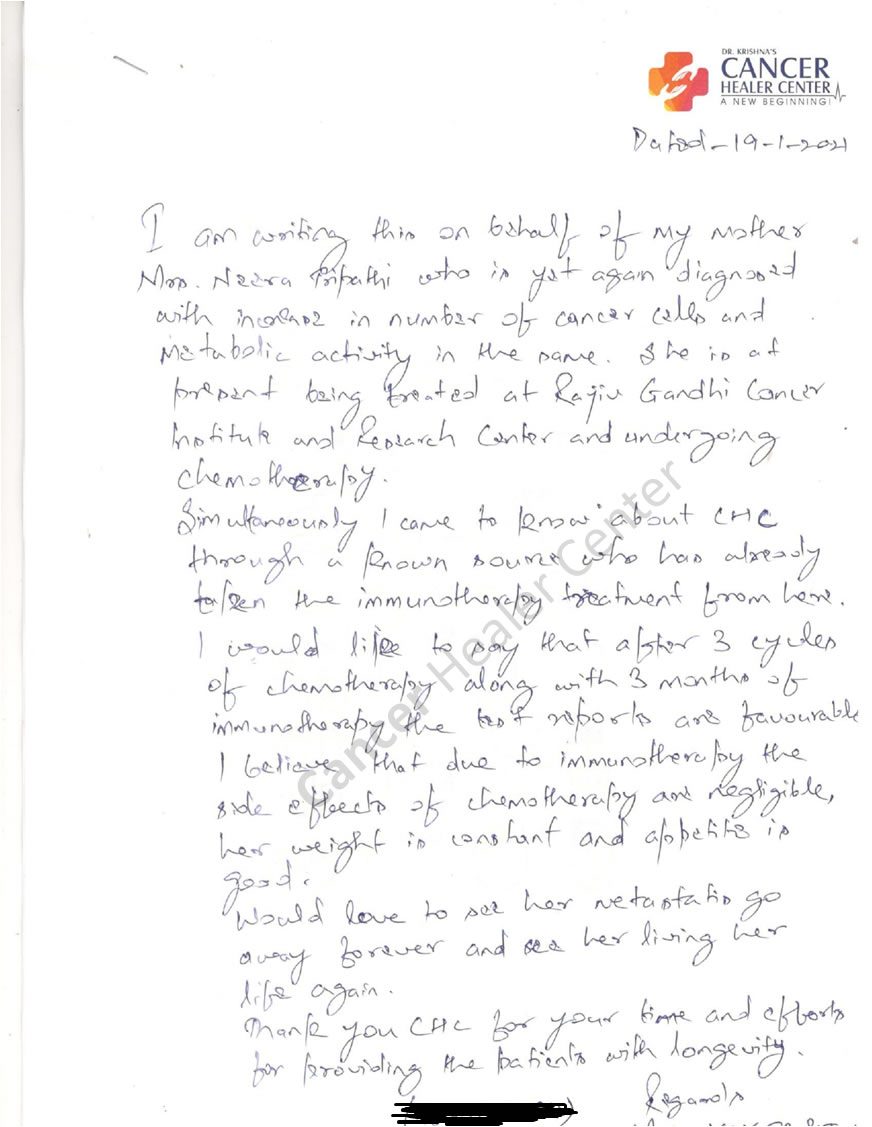 DR. KRISHNA'S
CANCER
HEALER CENTER
A NEW BEGINNING!
Dated-19-1-2021
I am writing this on behalf of my mother
Mrs. Neera Tripathi who is yet again diagnosed
with increase in number of cancer cells and
metabolic activity in the same. She is at
present being treated at Rajiv Gandhi Cancer
Institute and Research Center and undergoing
chemotherapy.
Simultaneously I came to know about CHC
through a known source who has already
taken the immunotherapy treatment from here.
I would like to say that after 3 cycles
of chemotherapy along with 3 months of
immunotherapy the test reports are favourable
I believe that due to immunotherapy the
side effects of chemotherapy are negligible,
her weight is constant and appetite is
good.
Would love to see her metastatis go
away forever and see her living her
life again.
Thank you CHC for your time and efforts
for providing the patients with longevity.
Regards
Cancer Healer Center